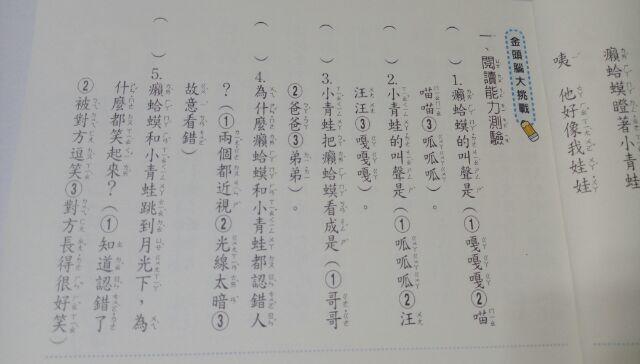 癩蛤蟆瞪著小青蛙
咦 他好像我娃娃
金頭腦大挑戰
一、閱讀能力測驗
( )1.癩蛤蟆的叫聲是(①嘎嘎嘎②喵
喵喵③呱呱呱)。
( )2.小青蛙的叫聲是(①呱呱呱②汪
汪汪③嘎嘎嘎)。
( )3.小青蛙把癩蛤蟆看成是(①哥哥
②爸爸③弟弟)。
( )4.為什麼癩蛤蟆和小青蛙都認錯人
?(①兩個都近視②光線太暗③
故意看錯)
( )5.癩蛤蟆和小青蛙跳到月光下,為
什麼都笑起來?(①知道認錯了
②被對方逗笑③對方長得很好笑)